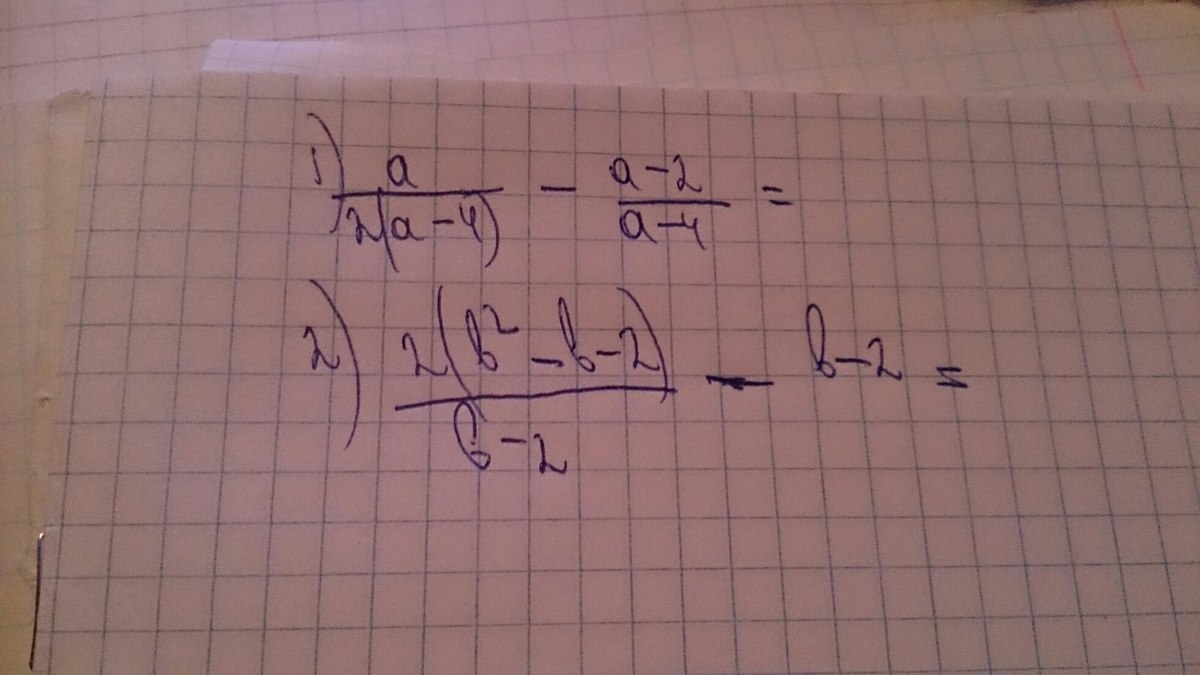 1) a/2(a-4) - a-2/a-4 =
2) 2(b²-b-2)/b-2 - b-2 =